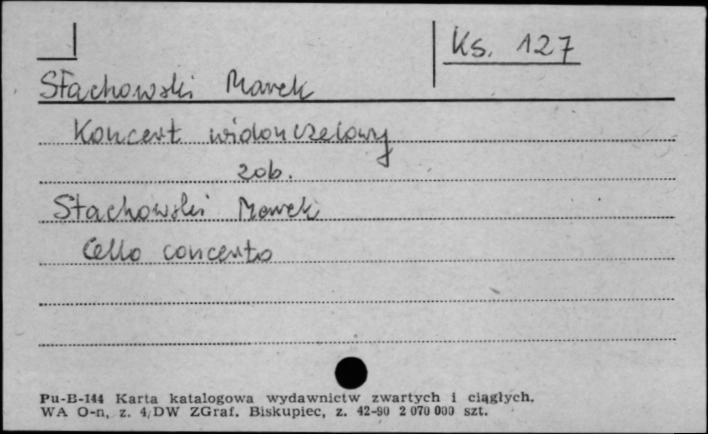 Ks. 127
Stachowski Marek
Koncert wiolonczelowy
zob.
Stachowski Marek
Cello concerto
Pu-B-144 Karta katalogowa wydawnictw zwartych i ciągłych.
WA O-n, z. 4/DW ZGraf. Biskupiec, z. 42-80 2 070 000 szt.